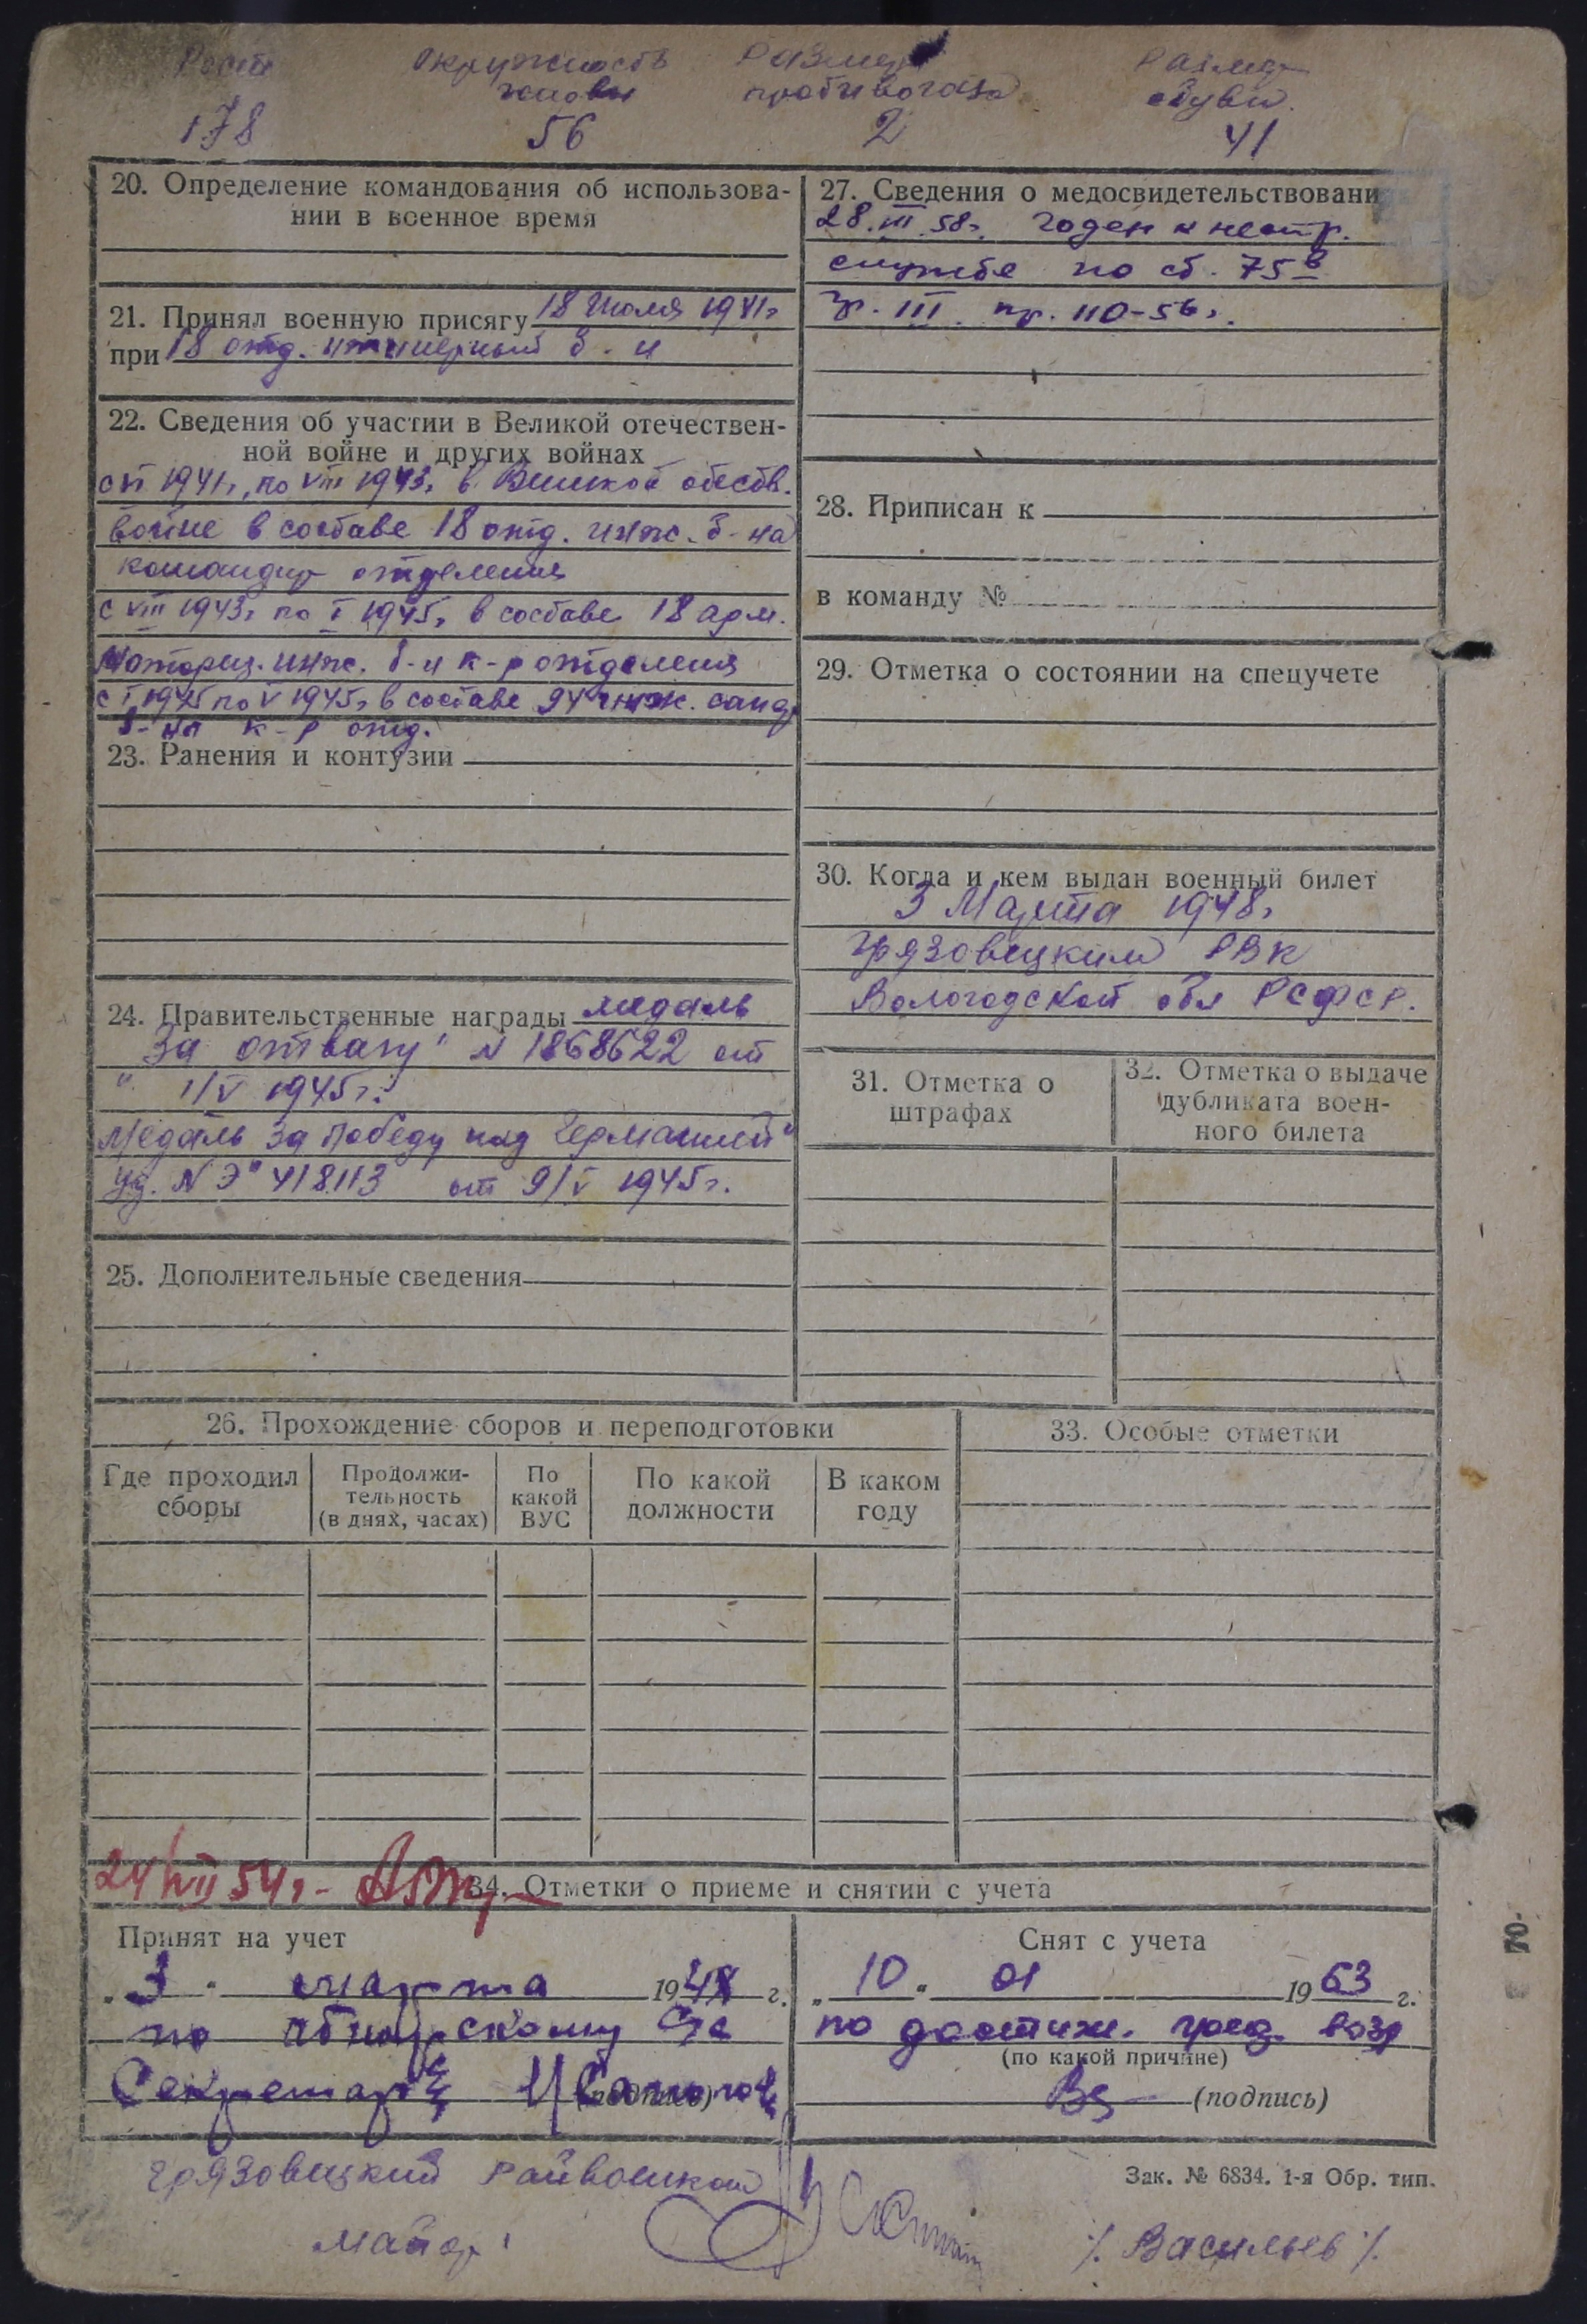 Рост Окружность Размер Размер
головы противогаза обуви.
178 56 2 41
20. Определение командования об использова-
нии в военное время
21. Принял военную присягу 18 Июля 1941г
при 18 отд. инженерный б-н
22. Сведения об участии в Великой отечествен-
ной войне и других войнах
с VI 1941г, по VIII 1943г в Великой отеств.
войне в составе 18 отд. инж. б-на
командир отделения
с VIII 1943г по I 1945г в составе 18 арм.
Моториз. инж. б-н к-р отделения
с I 1945 по V 1945г в составе 94 инж. сап
б-на к-р отд.
23. Ранения и контузии
24. Правительственные награды медаль
За отвагу" N 1868622 от
" 1/V 1945г.
Медаль за Победу над Германией"
уд. N Э" 418113 от 9/V 1945г.
25. Дополнительные сведения
26. Прохождение сборов и переподготовки
Где проходил сборы
Продолжи-
тельность
(в днях, часах)
По
какой
ВУС
По какой
должности
В каком
году
27. Сведения о медосвидетельствовани
28.III.58г. Годен к нестр.
службе по ст. 75в
гр. III. пр. 110-56г.
28. Приписан к
в команду №
29. Отметка о состоянии на спецучете
30. Когда и кем выдан военный билет
3 Марта 1948г
Грязовецким РВК
Вологодской обл РСФСР.
31. Отметка о
штрафах
32. Отметка о выдаче
дубликата воен-
ного билета
33. Особые отметки
24/VII 54г-
34. Отметки о приеме и снятии с учета
Принят на учет
"3" марта 1948 г.
по
Секретарь
(подпись)
Снят с учета
"10" 01 1963 г.
по достиж. пред. возр
(по какой причине)
(подпись)
Грязовецкий Райвоенком
майор
/. Васильев /.
Зак. № 6834. 1-я Обр. тип.
70-